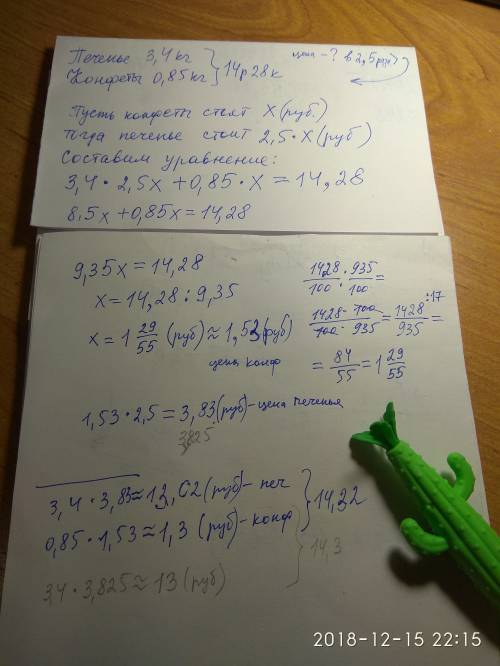 Печенье 3,4кг } 14р 28к цена - ? в 2,5 раз>
Конфеты 0,85кг
Пусть конфеты стоят x (руб.)
тогда печенье стоит 2,5·x (руб)
Составим уравнение:
3,4·2,5x + 0,85·x = 14,28
8.5x + 0,85x = 14,28
9,35x = 14,28
x = 14,28 : 9,35
x = 1 29/55 (руб) ≈ 1,53 (руб)
цена конф
1428/100 : 935/100 =
1428·100/100·935 = 1428/935 :17 =
= 84/55 = 1 29/55
1,53·2,5 = 3,83 (руб) - цена печенья
3,825
3,4·3,83 ≈ 13,02 (руб) - печ } 14,32
0,85·1,53 ≈ 1,3 (руб) - конф
3,4·3,825 ≈ 13 (руб) } 14,3
2018-12-15 22:15